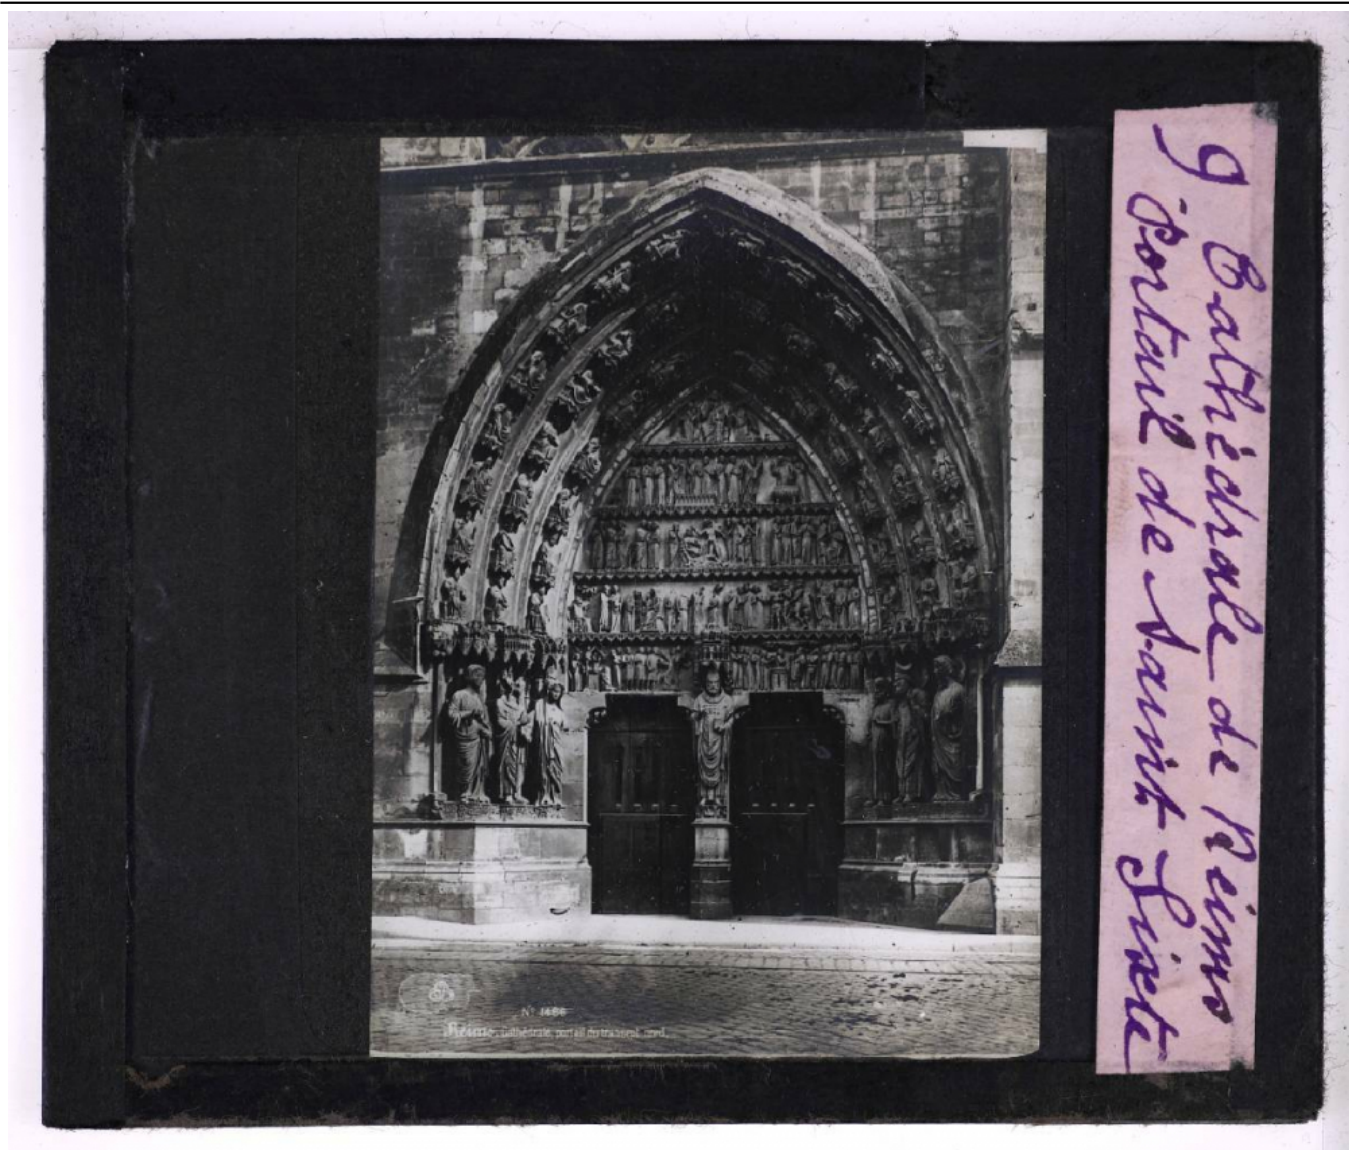 9 Cathédrale de Reims
Portail de Saint Sixte
Nº 1486
Reims, Cathédrale, portail du transept nord.